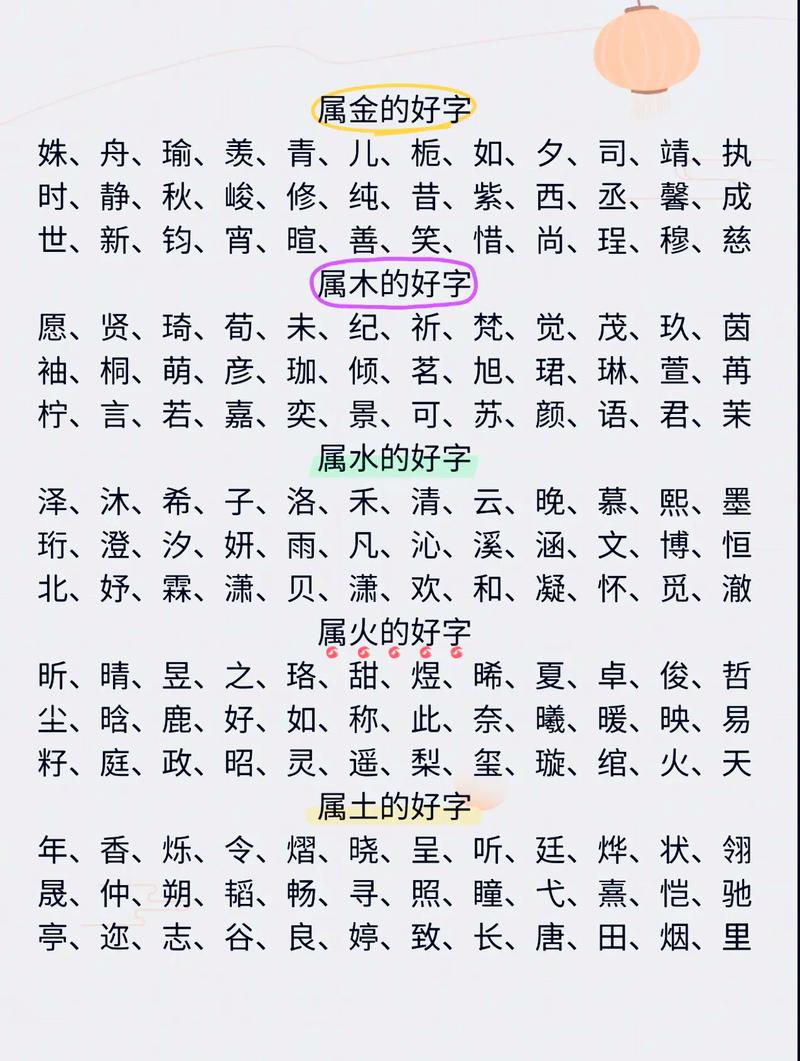 属金的好字
姝、舟、瑜、羡、青、儿、栀、如、夕、司、靖、执
时、静、秋、峻、修、纯、昔、紫、西、丞、馨、成
世、新、钧、宵、暄、善、笑、惜、尚、珵、穆、慈
属木的好字
愿、贤、琦、荀、未、纪、祈、梵、觉、茂、玖、茵
袖、桐、萌、彦、珈、倾、茗、旭、珺、琳、萱、苒
柠、言、若、嘉、奕、景、可、苏、颜、语、君、茉
属水的好字
泽、沐、希、子、洛、禾、清、云、晚、慕、熙、墨
珩、澄、汐、妍、雨、凡、沁、溪、涵、文、博、恒
北、妤、霖、潇、贝、潇、欢、和、凝、怀、觅、澈
属火的好字
昕、晴、昱、之、珞、甜、煜、晞、夏、卓、俊、哲
尘、晗、鹿、好、如、称、此、奈、曦、暖、映、易
籽、庭、政、昭、灵、遥、梨、玺、璇、绾、火、天
属土的好字
年、香、烁、令、熠、晓、呈、听、廷、烨、状、翎
晟、仲、朔、韬、畅、寻、照、瞳、弋、熹、恺、驰
亭、迩、志、谷、良、婷、致、长、唐、田、烟、里